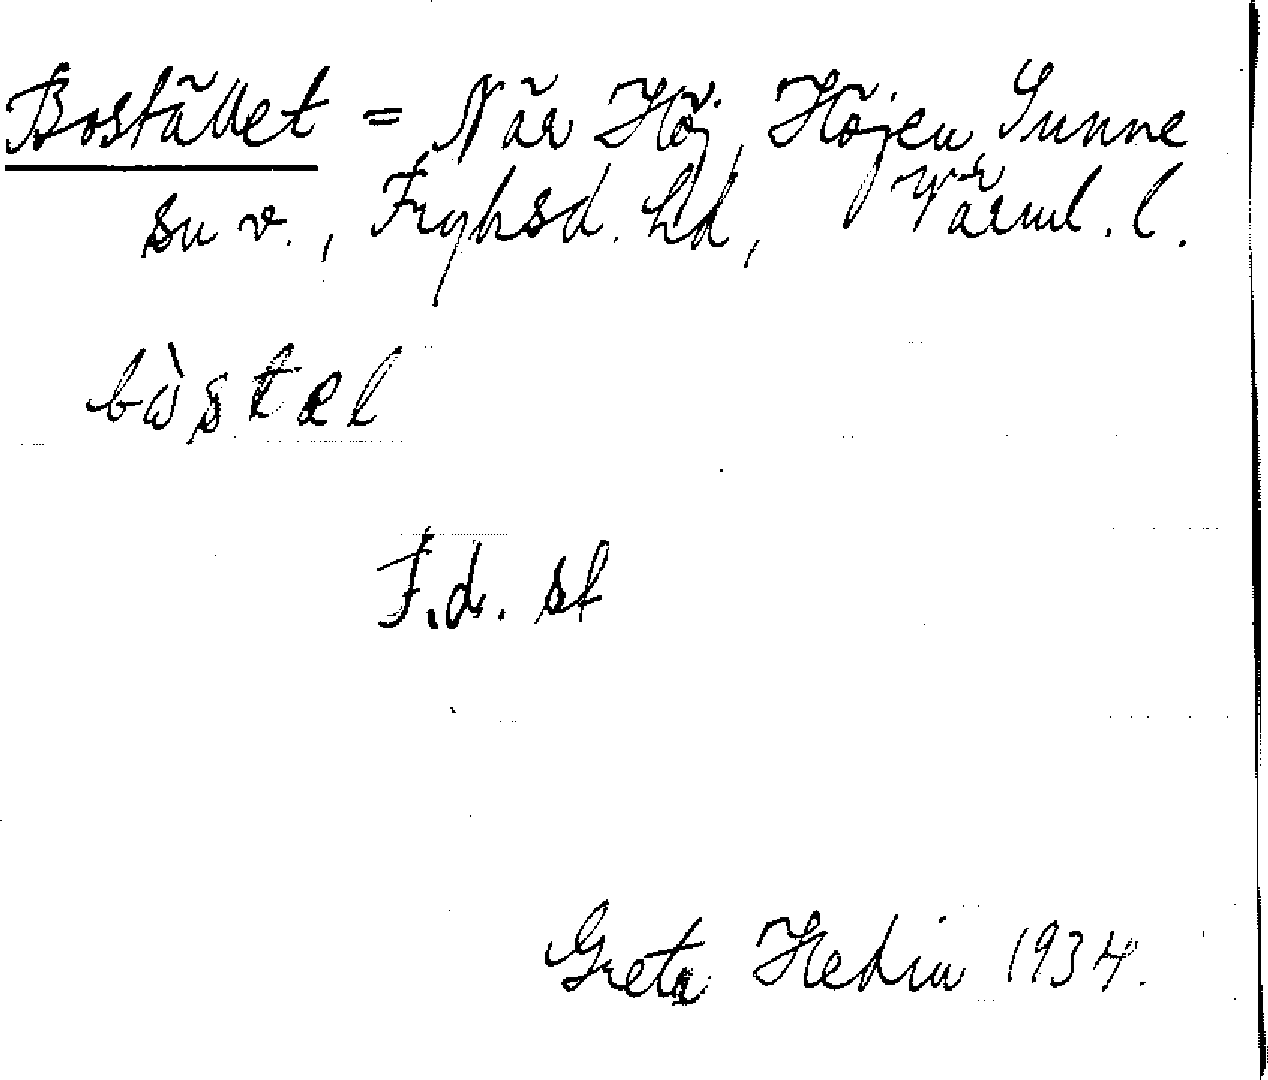 Bostället = När Höj, Höjen Sunne
sn v., Fryksd. hd, Värml. l.
bὼstæl
F.d. st
Greta Hedin 1934.